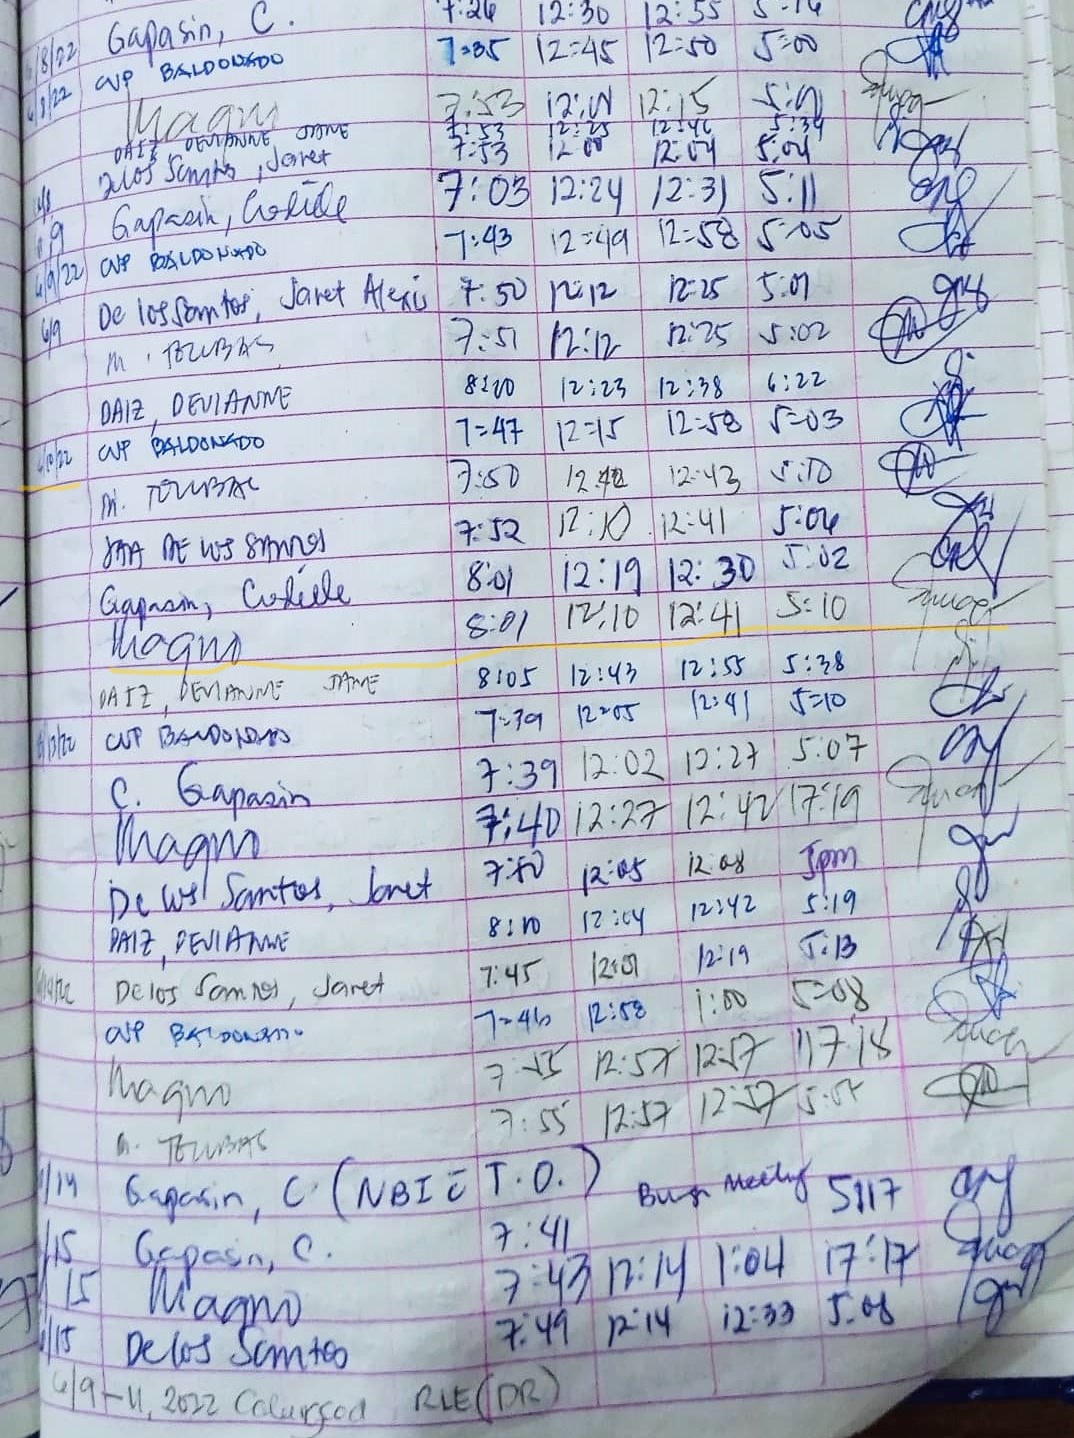 Gapasin, C. 7:26 12:30 12:55
6/8/22 CVP BALDONADO 7=35 12=45 12=50 5=00
6/8/22 Magno 7:53 12:01 12:15 5:01
DAIZ DEVIANNE JANE 7:53 12:25 12:46 5:34
Delos Santos, Jaret 7:53 12:00 12:04 5:04
Gapasin, Coliele 7:03 12:24 12:31 5:11
6/9/22 CVP BALDONADO 7:43 12=49 12=58 5=05
6/9 De los Santos, Jaret Alexis 7:50 12:12 12:25 5:01
M. TOLUBAS 7:51 12:12 12:25 5:02
DAIZ, DEVIANNE 8:20 12:23 12:38 6:22
6/10/22 CVP BALDONADO 7=47 12=15 12=58 5=03
M. TOLUBAS 7:50 12:42 12:43 5:10
JAA DE LOS SANTOS 7:52 12:10 12:41 5:06
Gapasin, Coliele 8:01 12:19 12:30 5:02
Magno 8:01 12:10 12:41 5:10
DAIZ, DEVIANNE JANE 8:05 12:43 12:55 5:38
6/13/22 CVP BALDONADO 7=39 12=05 12:41 5=10
C. Gapasin 7:39 12:02 12:27 5:07
Magno 7:40 12:27 12:42 17:19
De los Santos, Jaret 7:50 12:05 12:08 5pm
DAIZ, DEVIANNE 8:10 12:04 12:42 5:19
Delos Santos, Jaret 7:45 12:01 12:19 5:13
CVP BALDONADO 7=46 12:58 1:00 5=08
Magno 7:55 12:57 12:57 17:18
M. TOLUBAS 7:55 12:57 12:57
/14 Gapasin, C. (NBI c̄ T.O.) Meeting 5:17
/15 Gapasin, C. 7:41
15 Magno 7:43 12:14 1:04 17:17
/15 Delos Santos 7:49 12:14 12:33 5:08
6/9-11, 2022 RLE (DR)